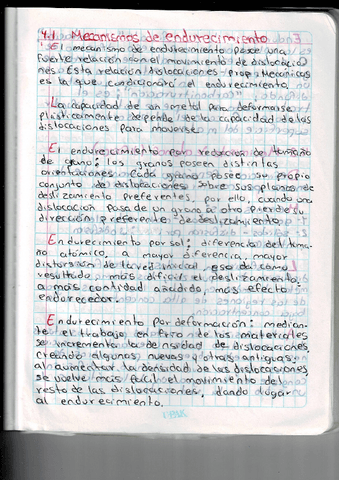 4.1 Mecanismos de endurecimiento
El mecanismo de endurecimiento posee una
fuerte relación con el movimiento de dislocacio
nes. Esta relación dislocaciones-prop. Mecánicas
es la que condicionará el endurecimiento.
La capacidad de un metal para deformarse
plasticamente depende de la capacidad de las
dislocaciones para moverse
El endurecimiento por reducción de tamaño
de grano: los granos poseen distintas
orientaciones. Cada grano posee su propio
conjunto de dislocaciones sobre sus planos de
deslizamiento preferentes, por ello, cuando una
dislocación pasa de un grano a otro pierde su
dirección preferente de deslizamiento.
Endurecimiento por sol: diferencia del tama-
no atómico, a mayor diferencia, mayor
distorsión de la red inicial, eso da como
resultado, más difícil el deslizamiento,
a más cantidad añadido, más efecto
endurecedor.
Endurecimiento por deformación: median-
te el trabajo en frío de los materiales
se incrementa la densidad de dislocaciones,
creando algunas nuevas y otras antiguas,
al aumentar la densidad de las dislocaciones,
se vuelve más fácil el movimiento del
resto de las dislocaciones, dando lugar
al endurecimiento.